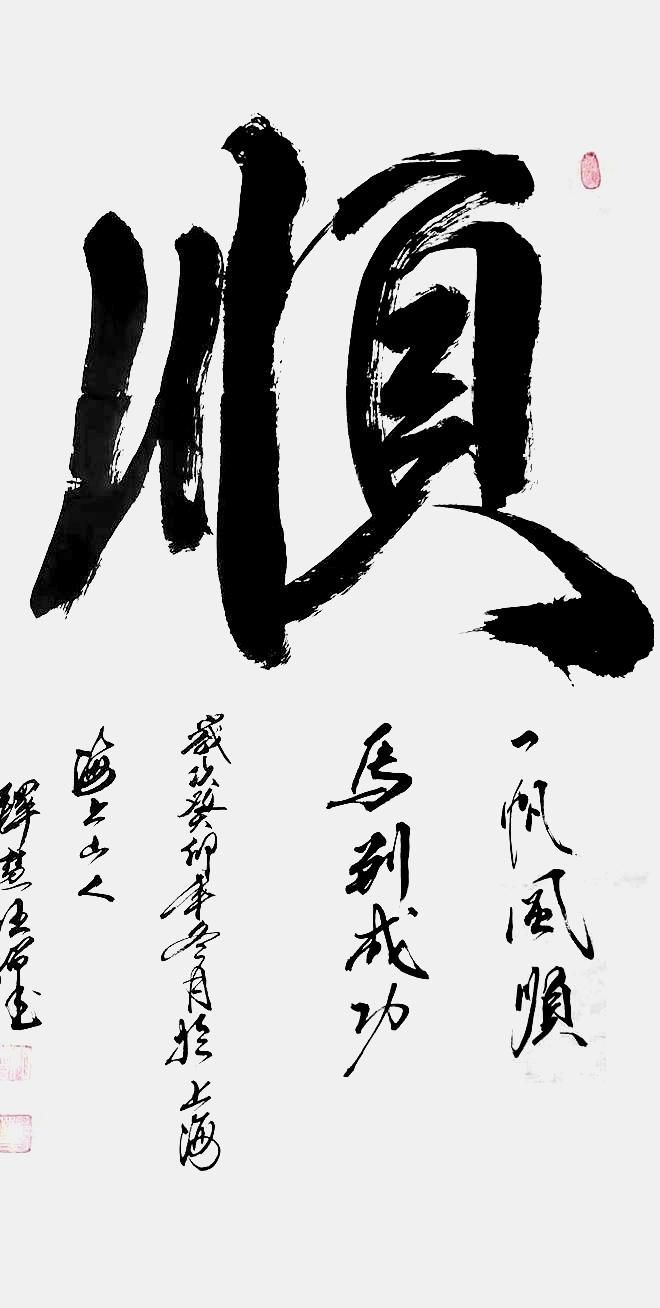 順
一帆風順
馬到成功
歲次癸卯年冬月於上海
海上山人
慧